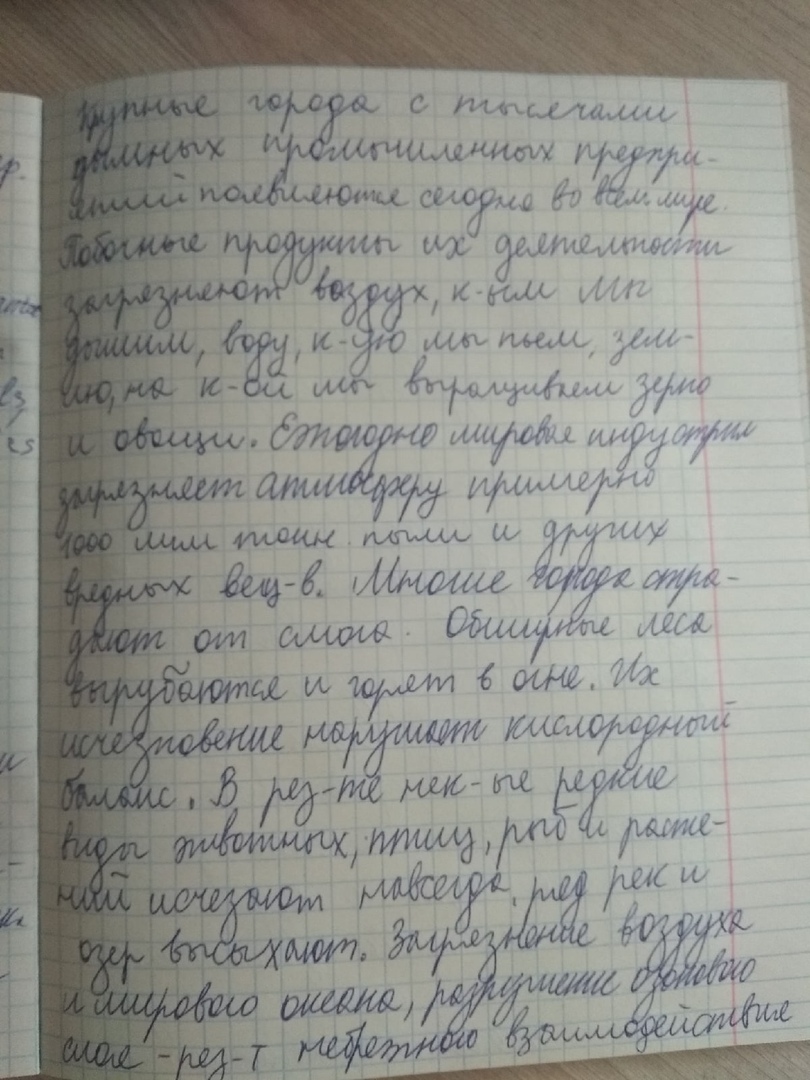 Крупные города с тысячами
дымных промышленных предпри-
ятий появляются сегодня во всем мире.
Побочные продукты их деятельности
загрязняют воздух, к-ым мы
дышим, воду, к-ую мы пьем, зем-
лю, на к-ой мы выращиваем зерно
и овощи. Ежегодно мировая индустрия
загрязняет атмосферу примерно
1000 млн тонн пыли и других
вредных вещ-в. Многие города стра-
дают от смога. Обширные леса
вырубаются и горят в огне. Их
исчезновение нарушает кислородный
баланс. В рез-те нек-ые редкие
виды животных, птиц, рыб и расте-
ний исчезают навсегда, ряд рек и
озер высыхают. Загрязнение воздуха
и мирового океана, разрушение озонового
слоя - рез-т небрежного взаимодействия